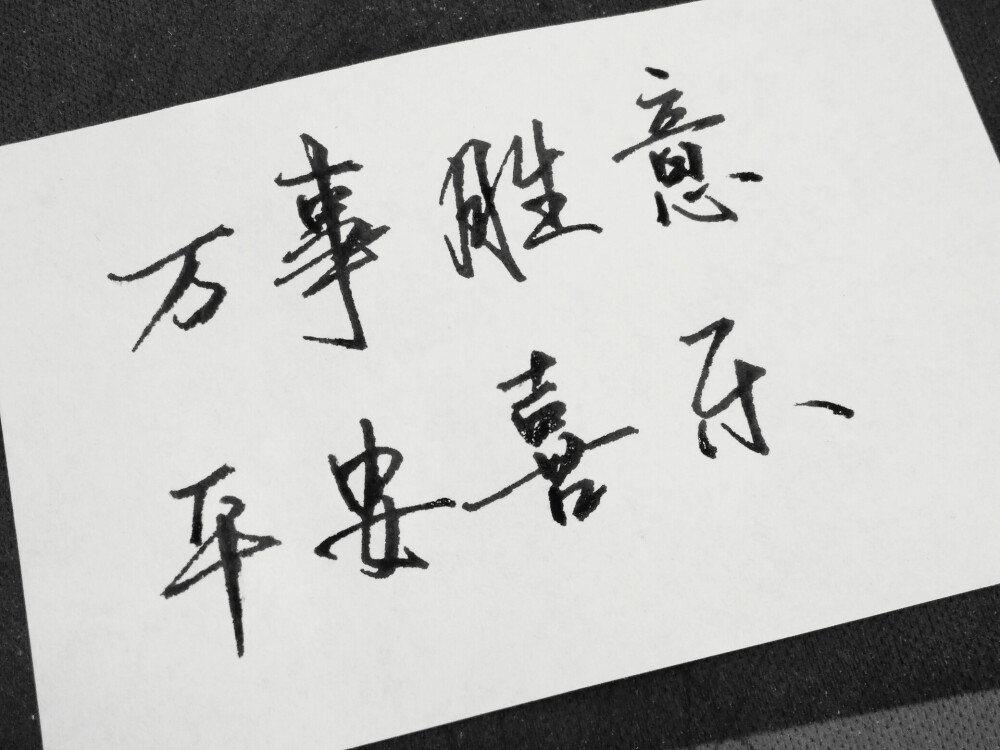 万事胜意
平安喜乐